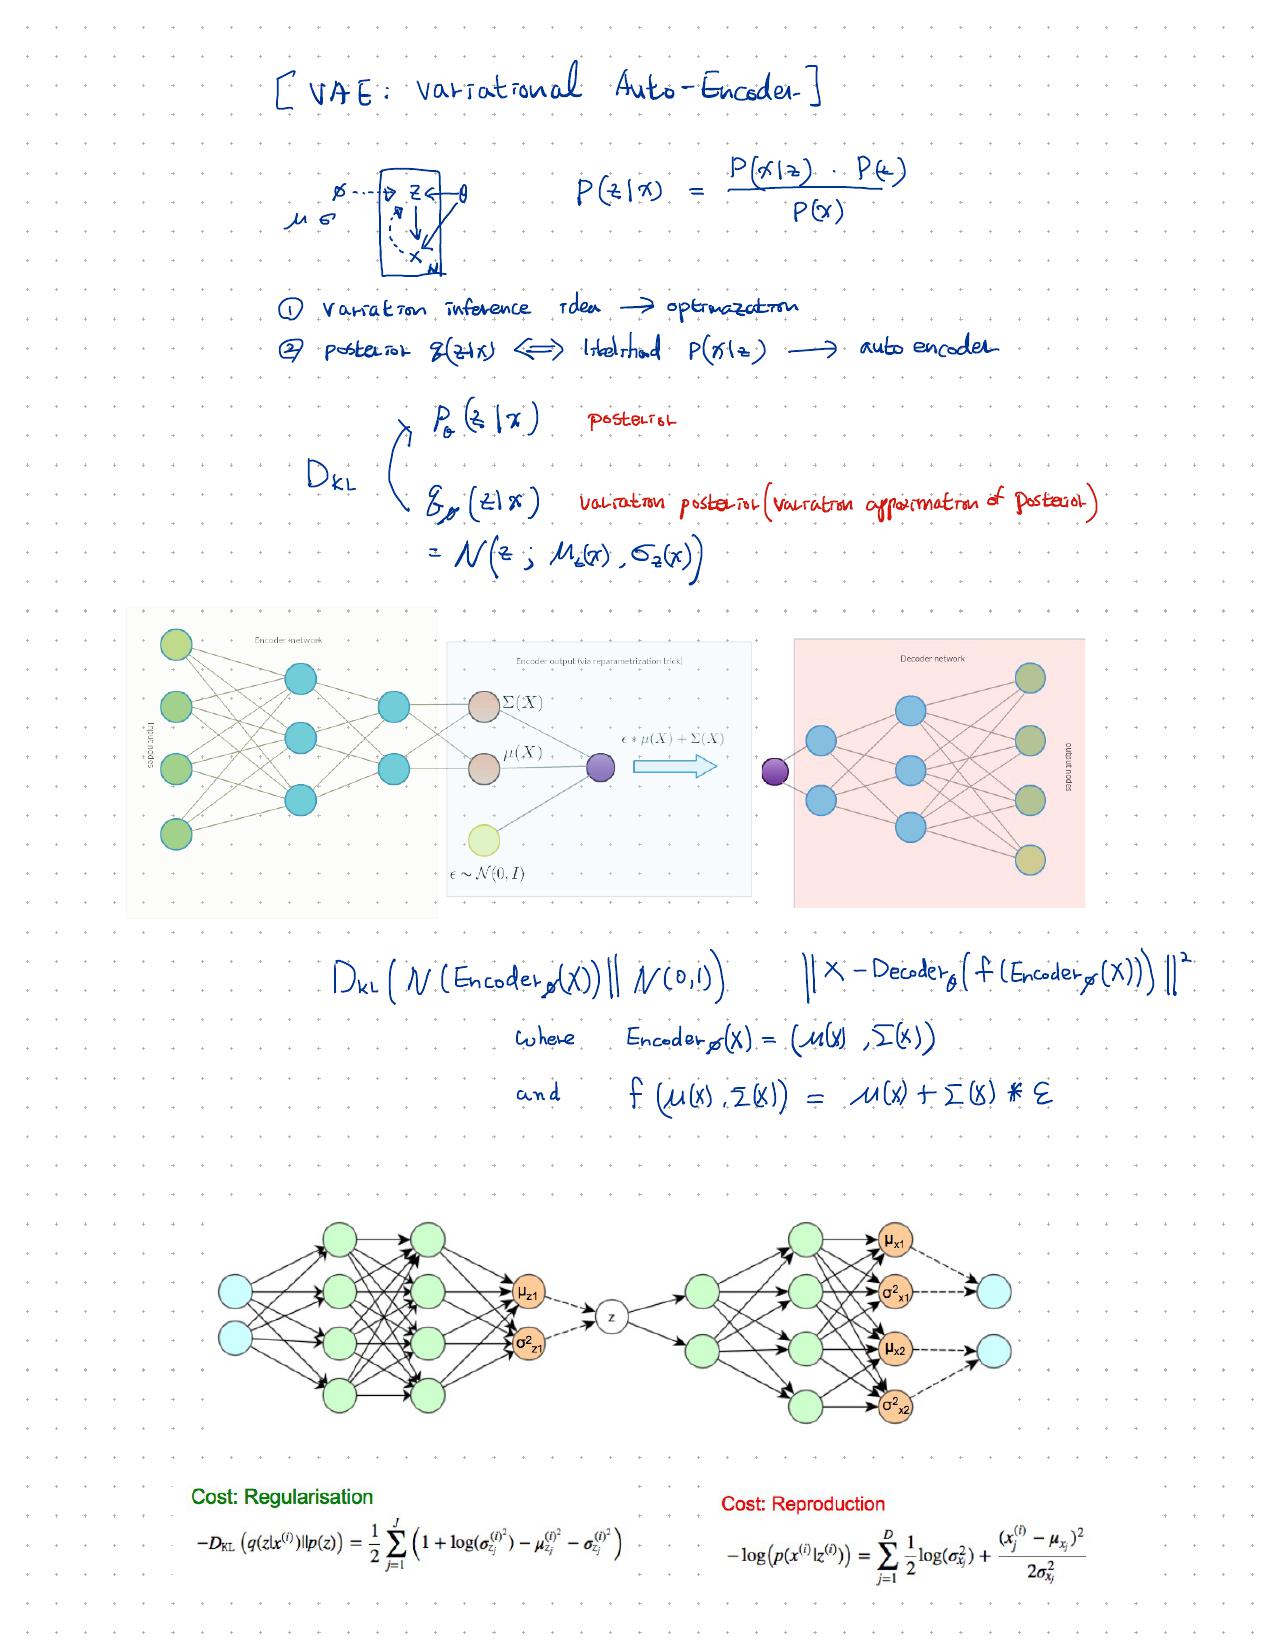 [ VAE: Variational Auto-Encoder ]
ϕ z θ
μ σ
x N
P(z|x) = P(x|z) · P(z) / P(x)
① variation inference idea → optimazation
② posterior q(z|x) ⟺ likelihood P(x|z) → auto encoder
P_θ(z|x) posterior
D_KL
q_ϕ(z|x) variation posterior (variation approximation of posterior)
= N(z ; μ_z(x), σ_z(x))
Encoder network
Input nodes
Encoder output (via reparametrization trick)
Σ(X)
μ(X)
ϵ ∗ μ(X) + Σ(X)
ϵ ~ N(0, I)
Decoder network
output nodes
D_KL(N(Encoder_ϕ(X)) || N(0,1)) ||X − Decoder_θ(f(Encoder_ϕ(X)))||²
where Encoder_ϕ(X) = (μ(X), Σ(X))
and f(μ(X), Σ(X)) = μ(X) + Σ(X) * ε
μ_z1
σ²_z1
z
μ_x1
σ²_x1
μ_x2
σ²_x2
Cost: Regularisation
−D_KL (q(z|x^(i))||p(z)) = 1/2 Σ_{j=1}^{J} (1 + log(σ_{z_j}^{(i)²}) − μ_{z_j}^{(i)²} − σ_{z_j}^{(i)²})
Cost: Reproduction
−log(p(x^(i)|z^(i))) = Σ_{j=1}^{D} 1/2 log(σ²_{x_j}) + (x_j^{(i)} − μ_{x_j})² / 2σ²_{x_j}